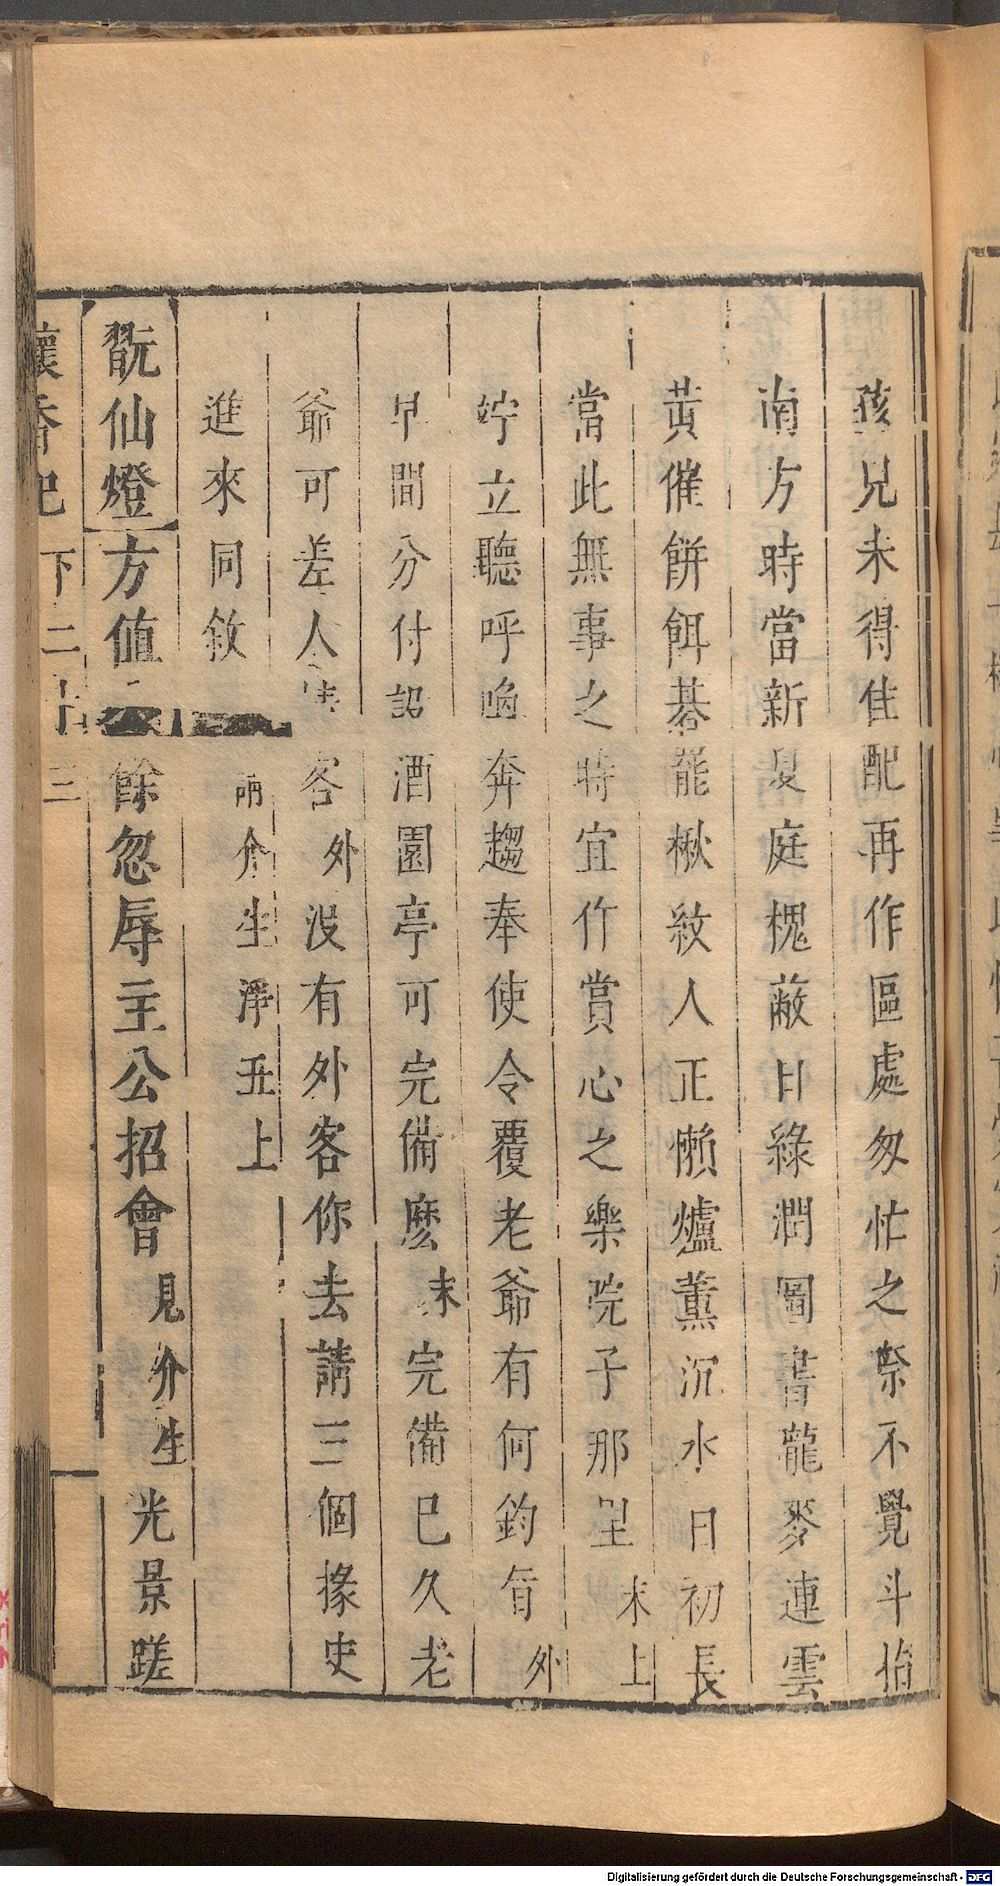 孩兒未得佳配再作區處匆忙之際不覺斗指
南方時當新夏庭槐蔽日綠潤圖書龍麥連雲
黃催餅餌棊罷楸紋人正懶爐薰沉水日初長
當此無事之時宜作賞心之樂院子那里末上
竚立聽呼喚奔趨奉使令覆老爺有何鈞旨外
早間分付詔酒園亭可完備麽末完備已久老
爺可差人請客外没有外客你去請三個掾史
進來同敘兩介生淨丑上
翫仙燈方值餘忽辱主公招會見介生光景蹉
懷香記 下 二十三
Digitalisierung gefördert durch die Deutsche Forschungsgemeinschaft - DFG